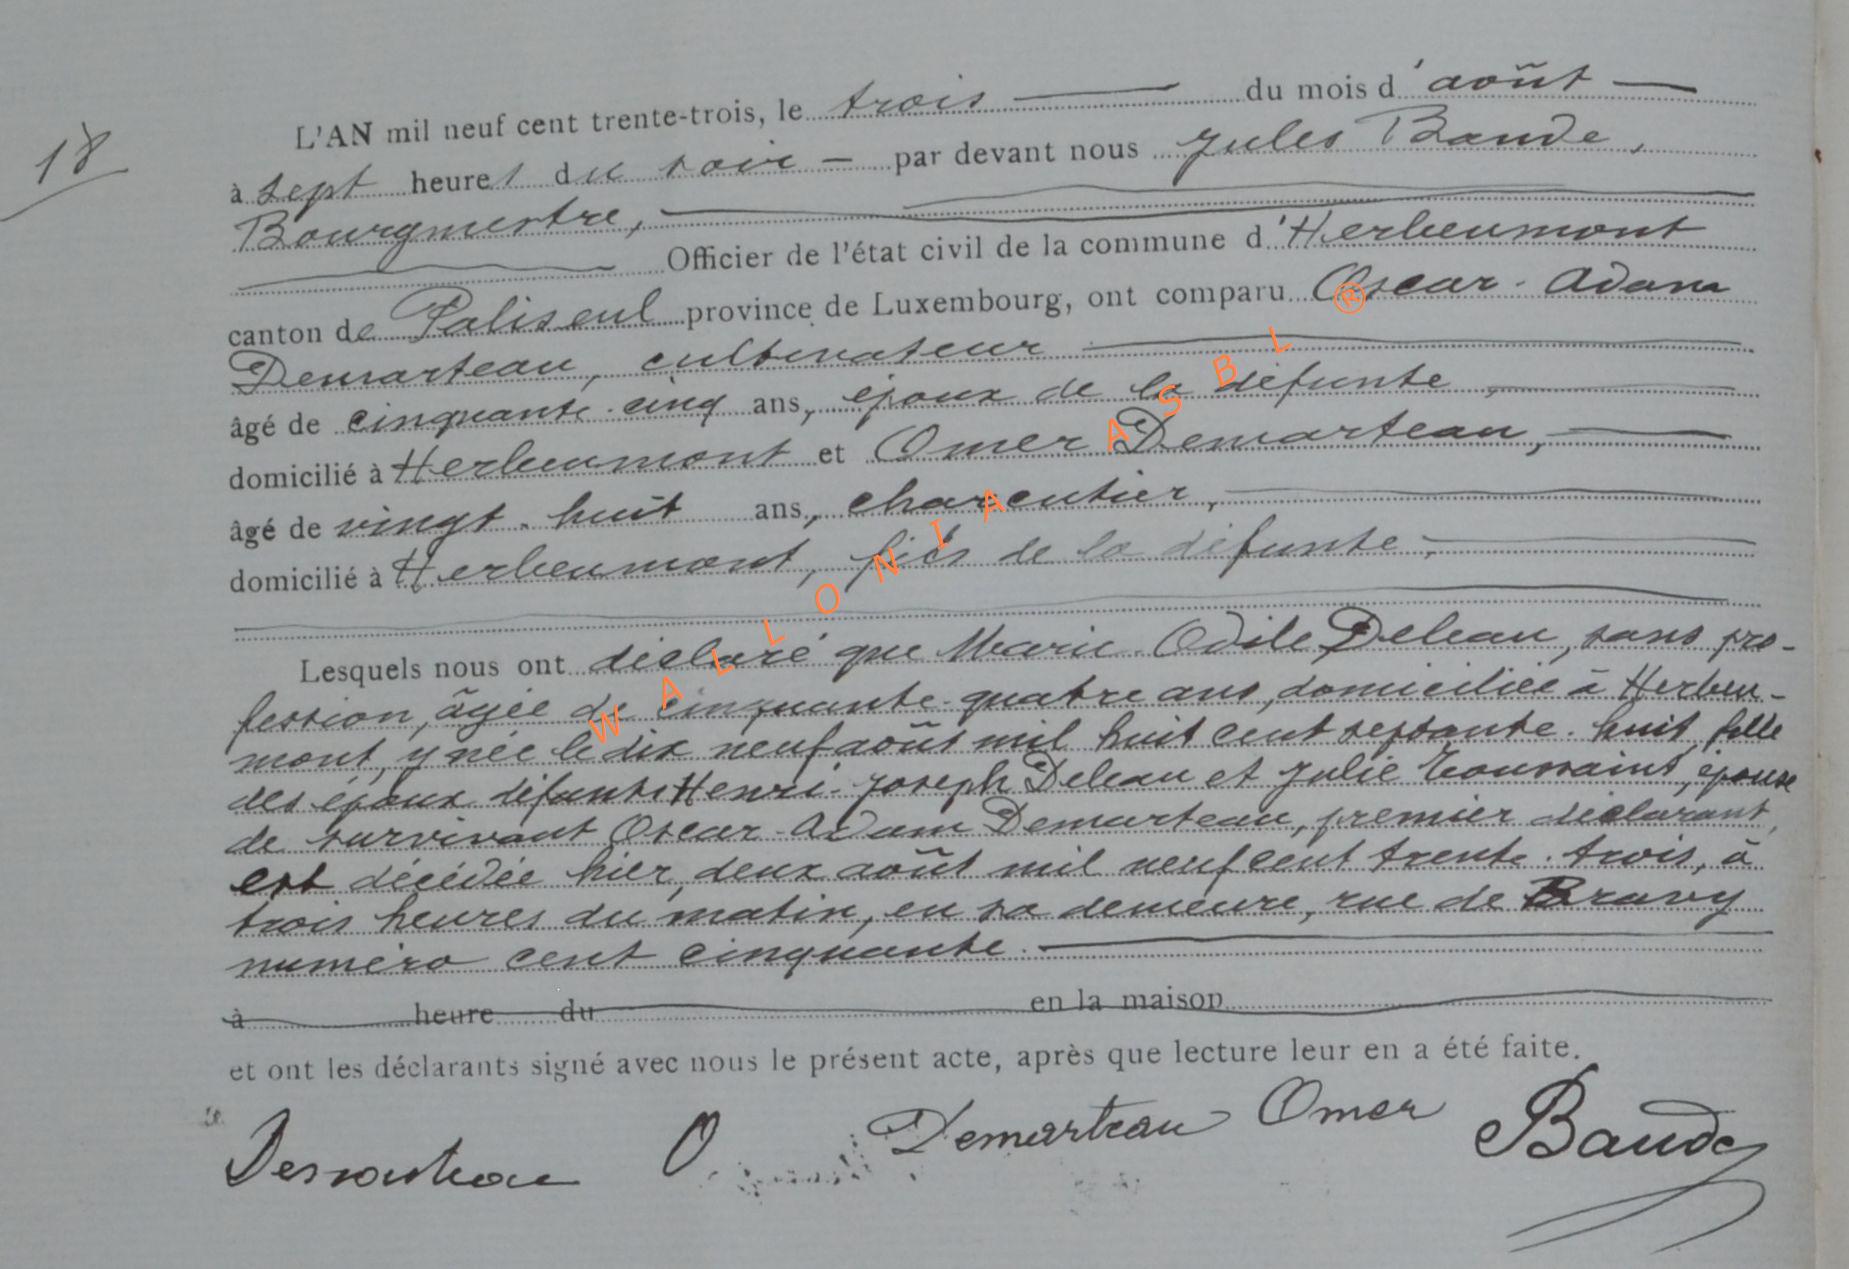 18
L'AN mil neuf cent trente-trois, le trois du mois d'août
à sept heures du soir par devant nous Jules Baude,
Bourgmestre,
Officier de l'état civil de la commune d'Herbeumont
canton de Paliseul province de Luxembourg, ont comparu Oscar-Adam
Demarteau, cultivateur
âgé de cinquante-cinq ans, époux de la défunte,
domicilié à Herbeumont et Omer Demarteau,
âgé de vingt-huit ans, charcutier,
domicilié à Herbeumont, fils de la défunte,
Lesquels nous ont déclaré que Marie-Odile Deleau, sans pro-
fession, âgée de cinquante-quatre ans, domiciliée à Herbeu-
mont, y née le dix neuf août mil huit cent septante-huit, fille
des époux défunts Henri-Joseph Deleau et Julie Toussaint, épouse
de survivant Oscar-Adam Demarteau, premier déclarant,
est décédée hier, deux août mil neuf cent trente-trois, à
trois heures du matin, en sa demeure, rue de Bravy
numéro cent cinquante.
à heure du en la maison
et ont les déclarants signé avec nous le présent acte, après que lecture leur en a été faite.
Demarteau O Demarteau Omer Baude
WALLONIA ASBL ®